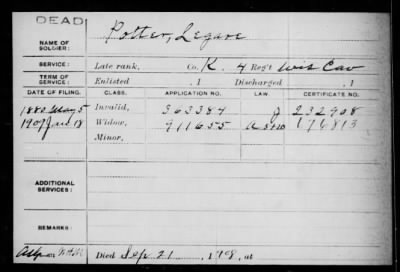 DEAD
NAME OF SOLDIER: Potter, Legare
SERVICE: Late rank, Co. K. 4 Reg't Wis Cav
TERM OF SERVICE: Enlisted .1 Discharged .1
DATE OF FILING. CLASS. APPLICATION NO. LAW. CERTIFICATE NO.
1880 May 5 Invalid, 363384 J 232908
1907 Jan 18 Widow, 911655 676813
Minor,
ADDITIONAL SERVICES:
REMARKS:
Died Sep. 21, 1908, at